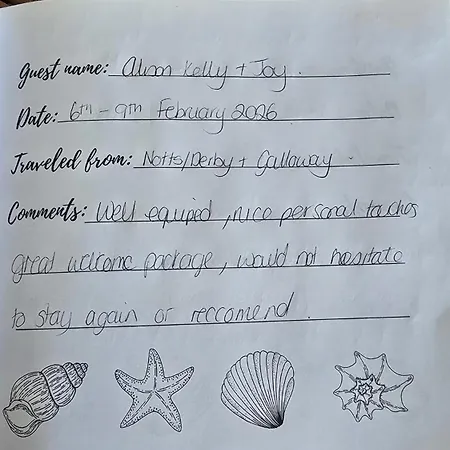 Guest name: Alison Kelly + Joy.
Date: 6th - 9th February 2026
Traveled from: Notts/Derby + Galloway
Comments: Well equiped, nice personal toches
great welcome package, would not hesitate
to stay again or reccomend.